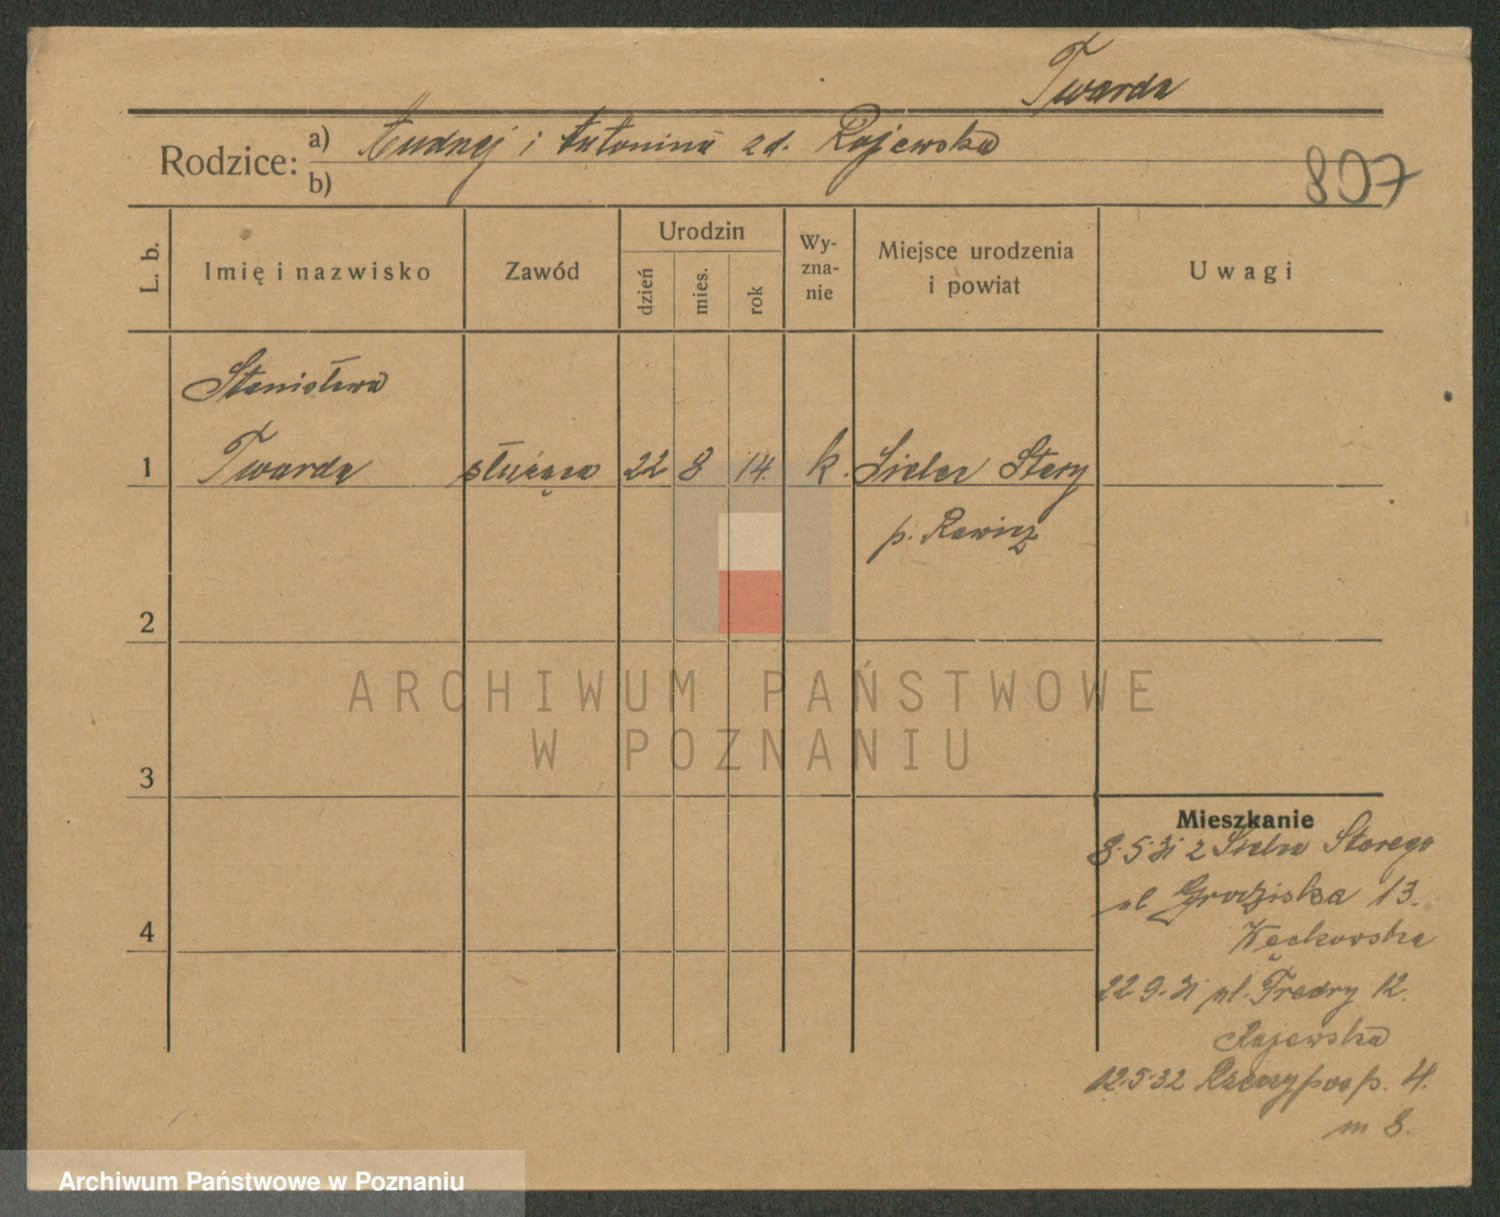 Twarda
Rodzice: a) Andrzej i Antonina zd. Rajewska
b)
807
L. b.
Imię i nazwisko
Zawód
Urodzin
dzień
mies.
rok
Wy-
zna-
nie
Miejsce urodzenia
i powiat
Uwagi
Stanisława
1 Twarda służąca 22 8 14. k. Sielec Stary
p. Rawicz
2
ARCHIWUM PAŃSTWOWE
W POZNANIU
3
Mieszkanie
8.5.31 z Sielca Starego
ul Grodziska 13.
4
22 9.31 pl. Fredry 12.
Rajewska
12.5.32 Rzeczyposp. 4.
m 8.
Archiwum Państwowe w Poznaniu